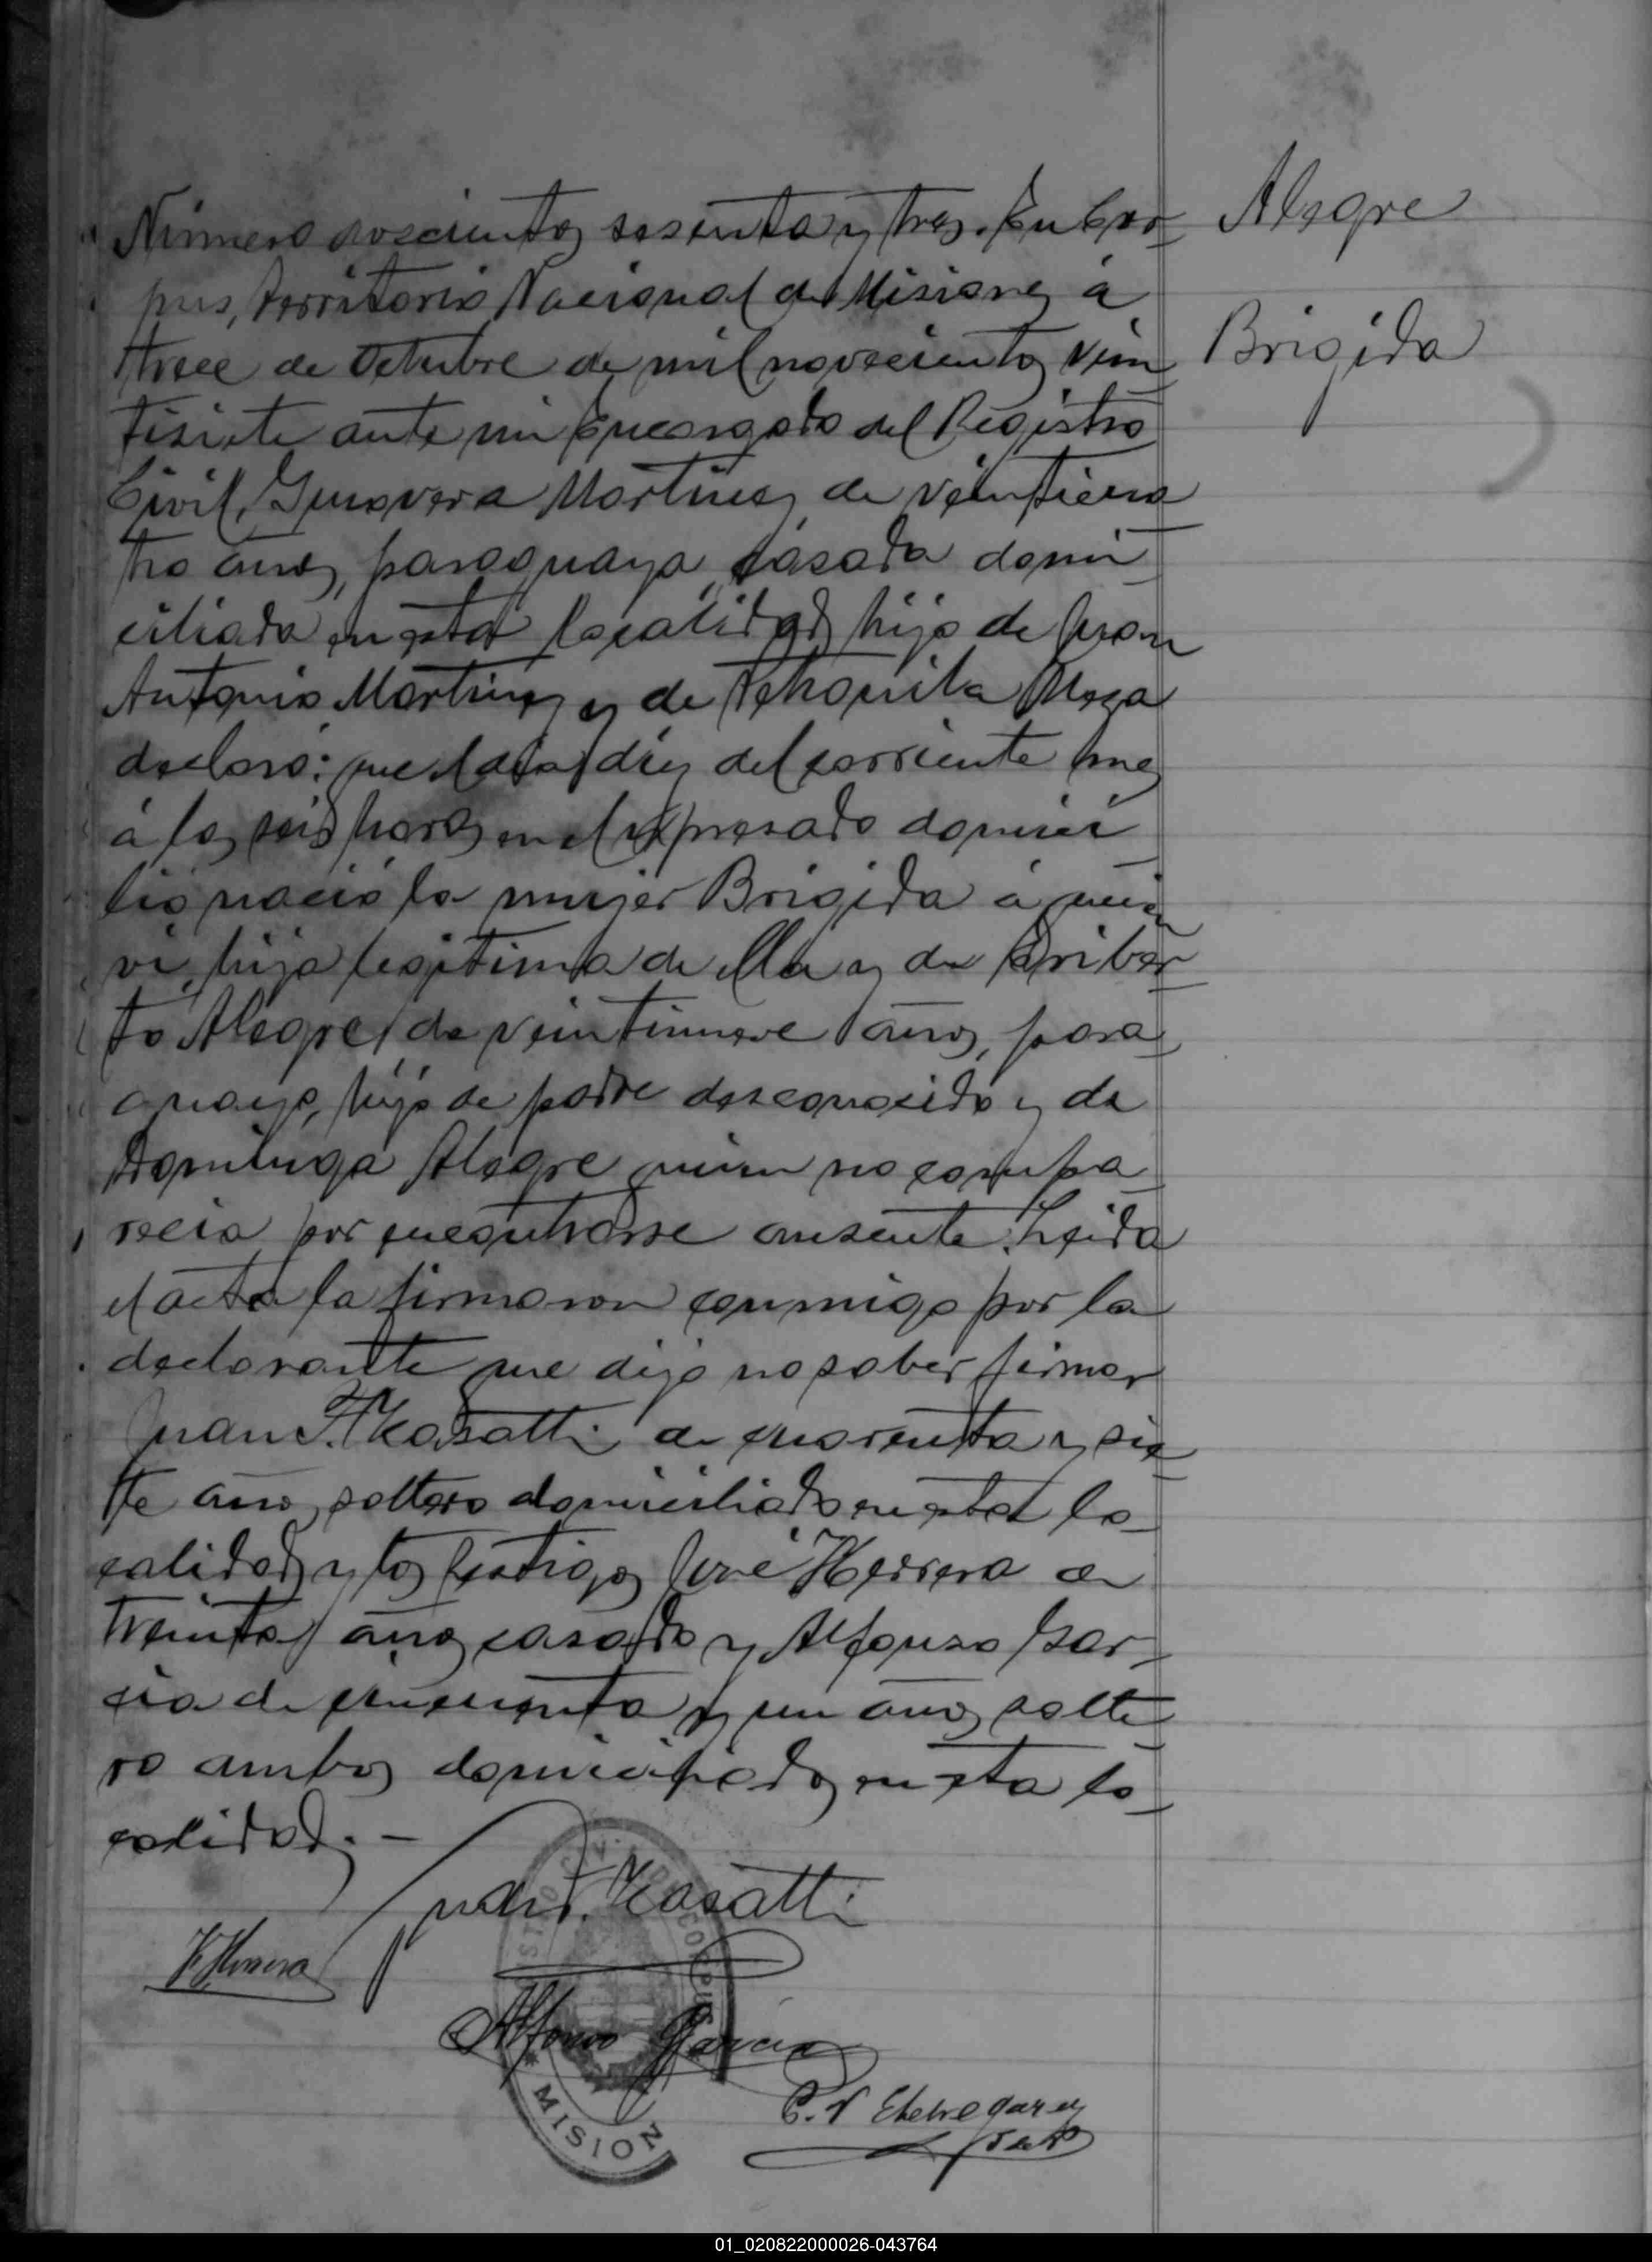 Número doscientos sesenta y tres. En Cor-
pus, Territorio Nacional de Misiones á
trece de Octubre de mil novecientos vein
tisiete ante mi Encargado del Registro
Civil, Martinez de veinticua
tro años, paraguaya, casada domi
ciliada en esta localidad, hija de Juan
Antonio Martinez y de Meza
declaró: que el día diez del corriente mes
á las seis horas en el expresado domici
lio nació la mujer Brigida á quien
vi, hija legitima de ella y de Eriber
to Alegre, de veintinueve años, para
guayo, hijo de padre desconocido y de
Dominga Alegre quien no compa
recia por encontrarse ausente. Leida
el acta la firmaron conmigo por la
declarante que dijo no saber firmar
Juan Kasatti de cuarenta y sie
te años, soltero domiciliado en esta lo
calidad y los testigos José Herrera de
treinta años casado y Alfonso Gar-
cia de cincuenta y un años solte
ro ambos domiciliados en esta lo
calidad. —
Alegre
Brigida
Juan Kasatti
J. Herrera
Alfonso Garcia
C. V. Etchegaray
MISION
01_020822000026-043764